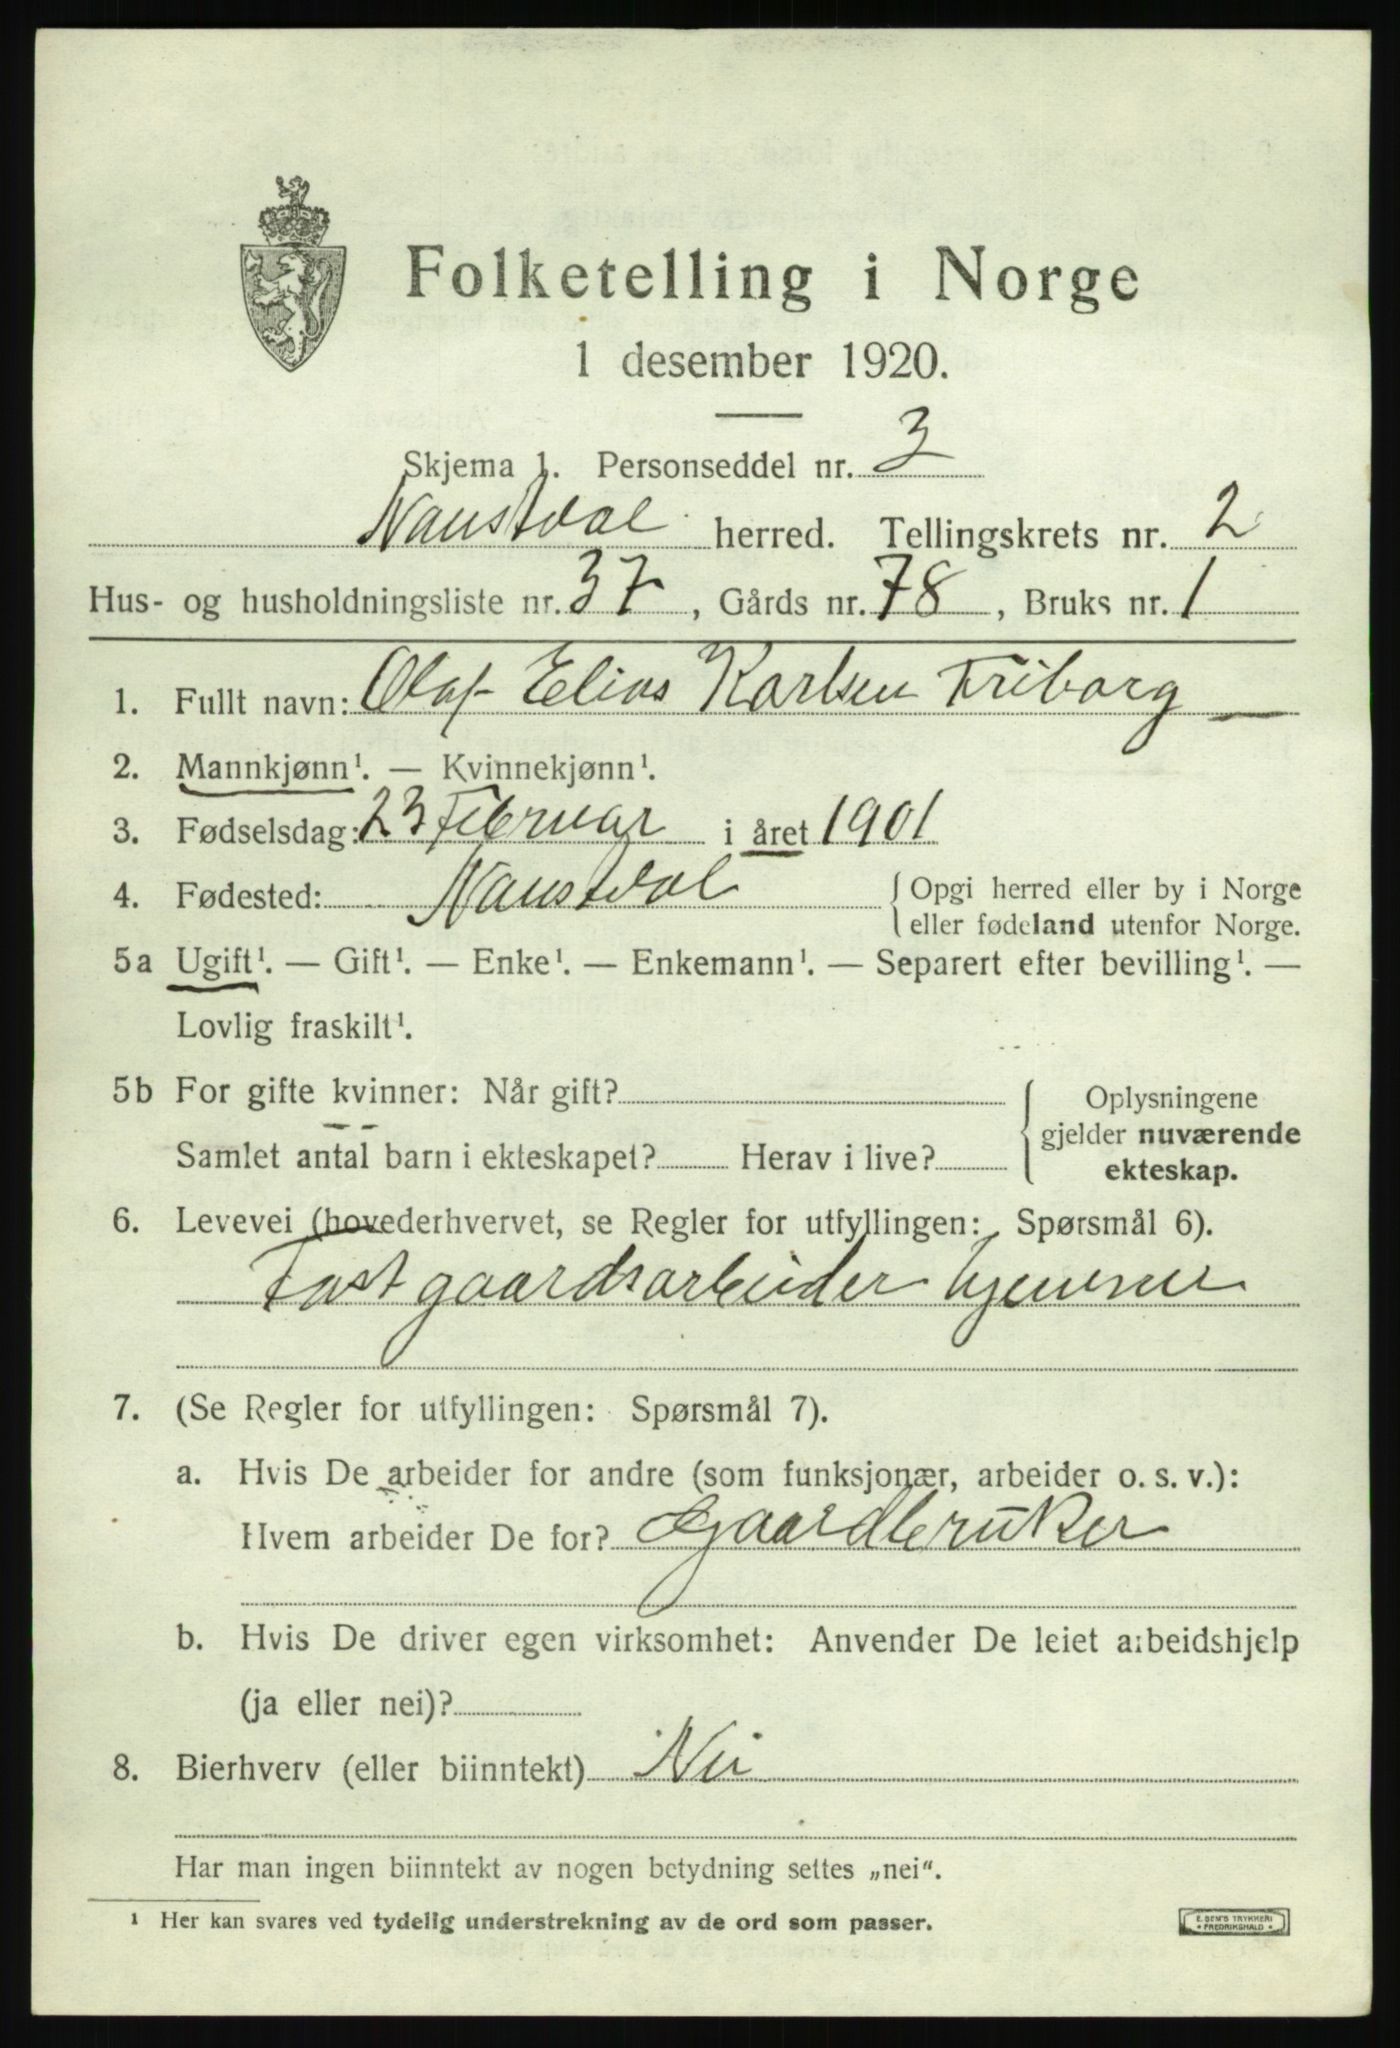 Folketelling i Norge
1 desember 1920.
Skjema 1. Personseddel nr. 3
Naustdal herred. Tellingskrets nr. 2
Hus- og husholdningsliste nr. 37, Gårds nr. 78, Bruks nr. 1
1. Fullt navn: Olaf Elias Karlsen Friborg
2. Mannkjønn¹. — Kvinnekjønn¹.
3. Fødselsdag: 23 Februar i året 1901
4. Fødested: Naustdal { Opgi herred eller by i Norge
eller fødeland utenfor Norge.
5a Ugift¹. — Gift¹. — Enke¹. — Enkemann¹. — Separert efter bevilling¹. —
Lovlig fraskilt¹.
5b For gifte kvinner: Når gift?
Samlet antal barn i ekteskapet? Herav i live?
Oplysningene
gjelder nuværende
ekteskap.
6. Levevei (hovederhvervet, se Regler for utfyllingen: Spørsmål 6).
Fast gaardsarbeider hjemme
7. (Se Regler for utfyllingen: Spørsmål 7).
a. Hvis De arbeider for andre (som funksjonær, arbeider o. s. v.):
Hvem arbeider De for? Gaardbruker
b. Hvis De driver egen virksomhet: Anvender De leiet arbeidshjelp
(ja eller nei)?
8. Bierhverv (eller biinntekt) Nei
Har man ingen biinntekt av nogen betydning settes „nei“.
¹ Her kan svares ved tydelig understrekning av de ord som passer.
E. SEM'S TRYKKERI
• FREDRIKSHALD •